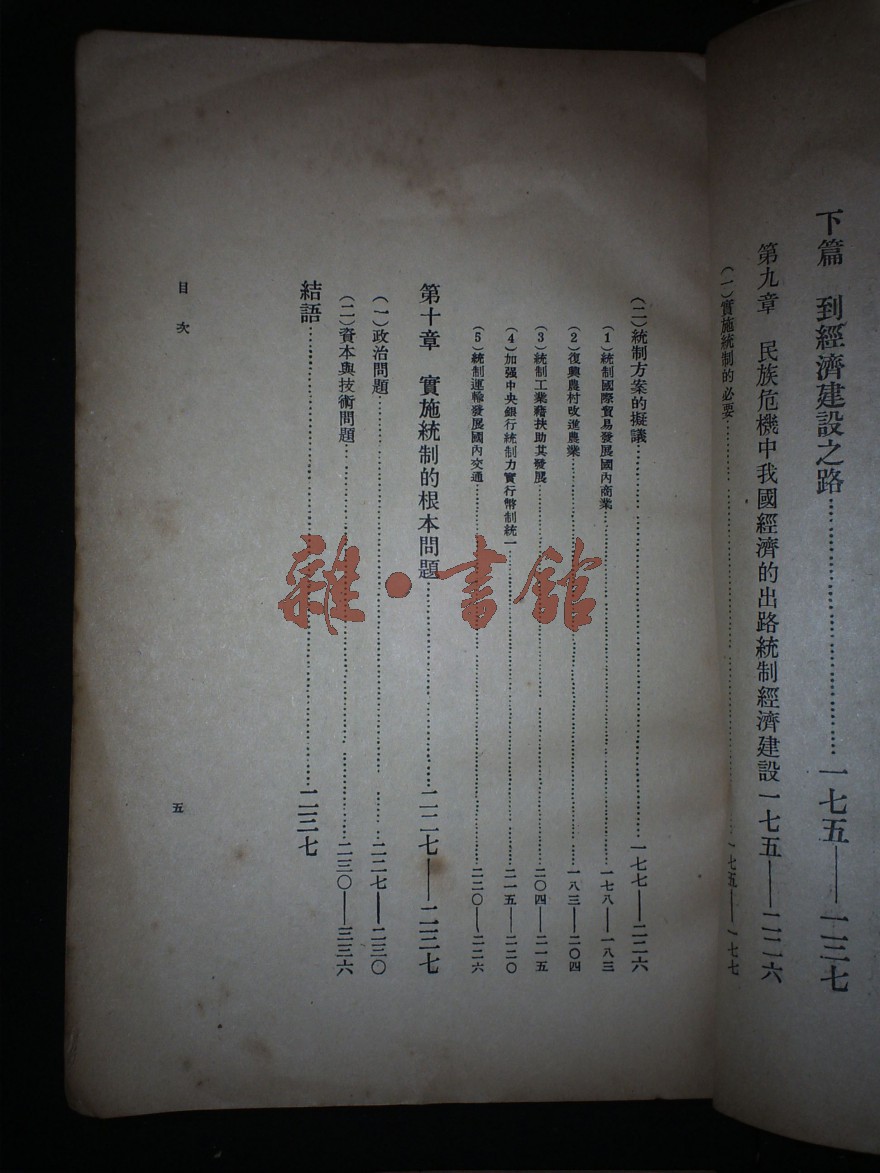 下篇　到經濟建設之路……一七五——一三七
第九章　民族危機中我國經濟的出路統制經濟建設一七五——二二六
（一）實施統制的必要……一七五——一七七
（二）統制方案的擬議……一七七——二二六
（1）統制國際貿易發展國內商業……一七八——一八三
（2）復興農村改進農業……一八三——二〇四
（3）統制工業藉扶助其發展……二〇四——二一五
（4）加强中央銀行統制力實行幣制統一……二一五——二二〇
（5）統制運輸發展國內交通……二二〇——二二六
第十章　實施統制的根本問題……二二七——二三七
（一）政治問題……二二七——二三〇
（二）資本與技術問題……二三〇——三三六
結語……二三七
目次
五
雜·書館